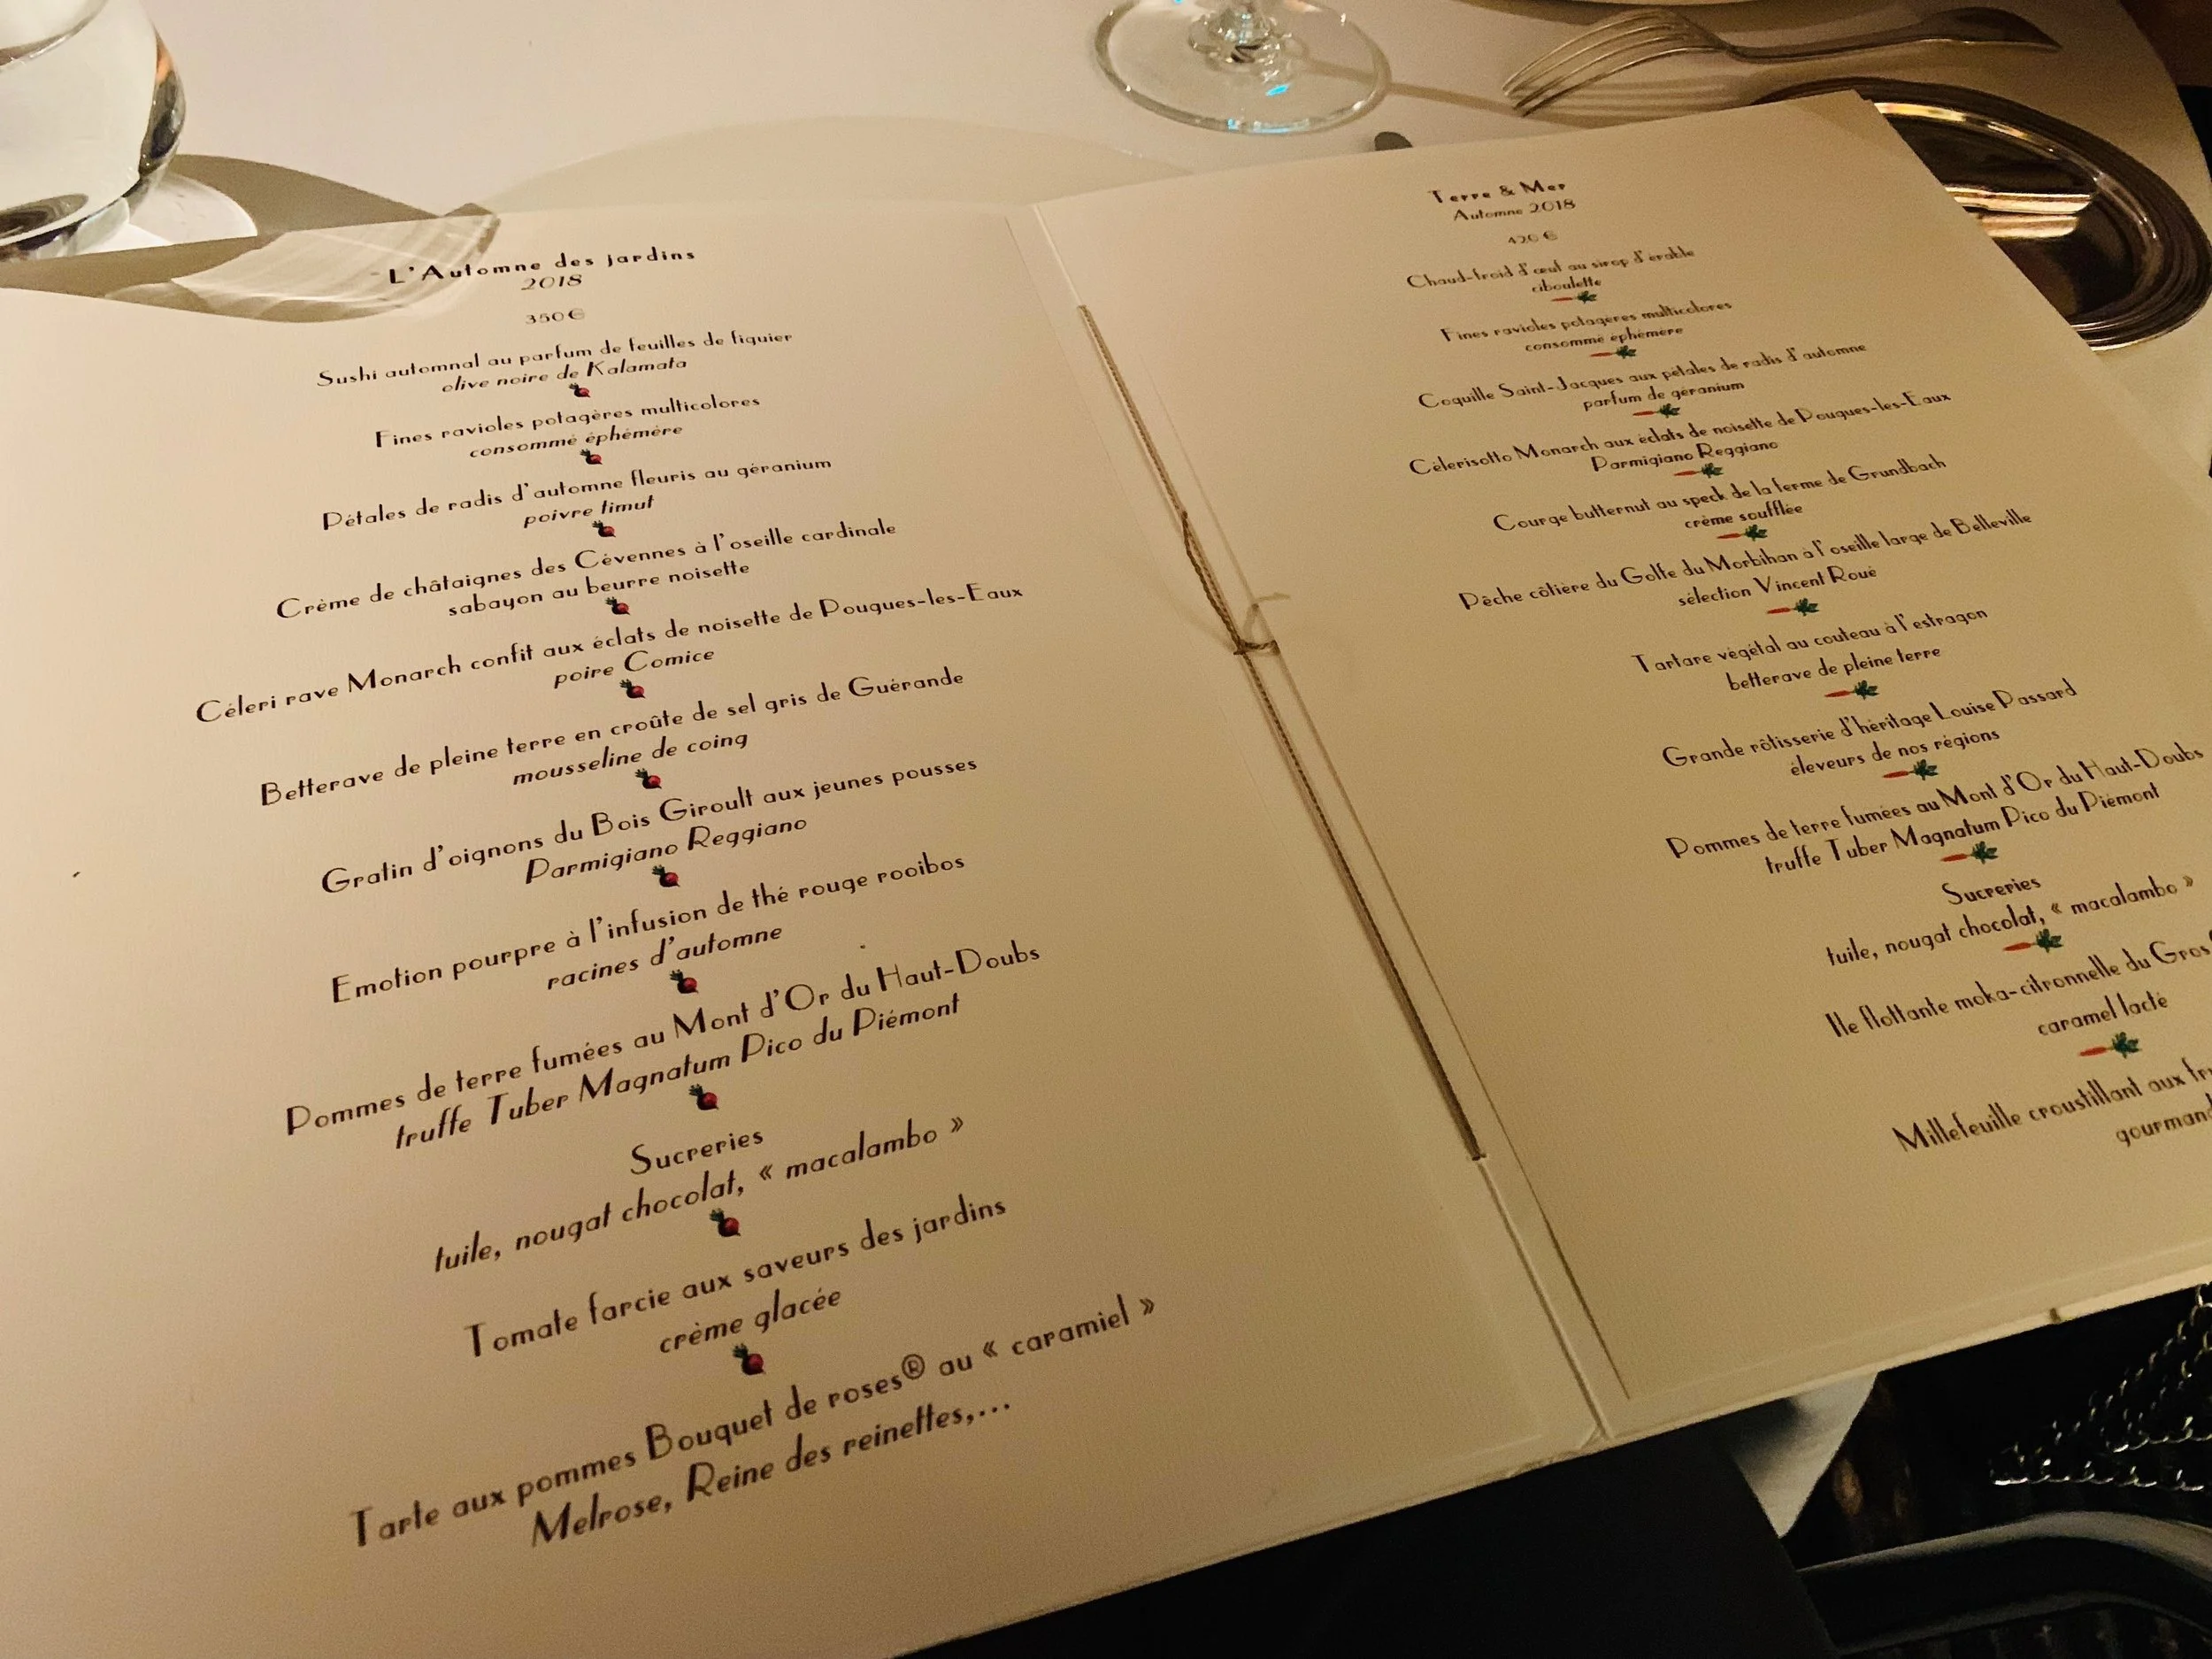 L'Automne des jardins
2018
350€
Sushi automnal au parfum de feuilles de figuier
olive noire de Kalamata
Fines ravioles potagères multicolores
consommé éphémère
Pétales de radis d'automne fleuris au géranium
poivre timut
Crème de châtaignes des Cévennes à l'oseille cardinale
sabayon au beurre noisette
Céleri rave Monarch confit aux éclats de noisette de Pougues-les-Eaux
poire Comice
Betterave de pleine terre en croûte de sel gris de Guérande
mousseline de coing
Gratin d'oignons du Bois Giroult aux jeunes pousses
Parmigiano Reggiano
Emotion pourpre à l'infusion de thé rouge rooibos
racines d'automne
Pommes de terre fumées au Mont d'Or du Haut-Doubs
truffe Tuber Magnatum Pico du Piémont
Sucreries
tuile, nougat chocolat, « macalambo »
Tomate farcie aux saveurs des jardins
crème glacée
Tarte aux pommes Bouquet de roses® au « caramiel »
Melrose, Reine des reinettes,...
Terre & Mer
Automne 2018
420 €
Chaud-froid d'œuf au sirop d'érable
ciboulette
Fines ravioles potagères multicolores
consommé éphémère
Coquille Saint-Jacques aux pétales de radis d'automne
parfum de géranium
Célerisotto Monarch aux éclats de noisette de Pougues-les-Eaux
Parmigiano Reggiano
Courge butternut au speck de la ferme de Grundbach
crème soufflée
Pêche côtière du Golfe du Morbihan à l'oseille large de Belleville
sélection Vincent Roué
Tartare végétal au couteau à l'estragon
betterave de pleine terre
Grande rôtisserie d'héritage Louise Passard
éleveurs de nos régions
Pommes de terre fumées au Mont d'Or du Haut-Doubs
truffe Tuber Magnatum Pico du Piémont
Sucreries
tuile, nougat chocolat, « macalambo »
Ile flottante moka-citronnelle du Gros
caramel lacté
Millefeuille croustillant aux